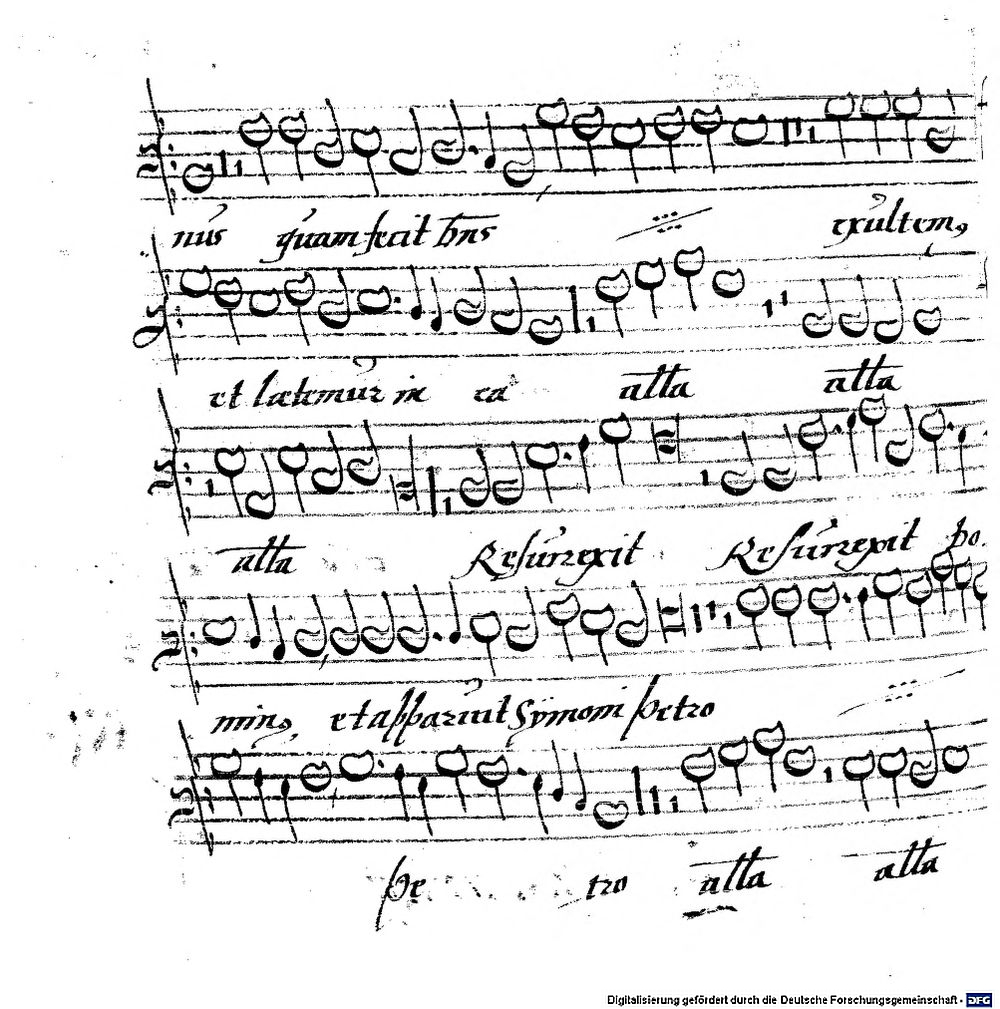 nus quam fecit dns exultem9
et lætemur in ea alla alla
alla Resurrexit Resurrexit do.
min9, et apparuit Symoni petro
pe tro alla alla
Digitalisierung gefördert durch die Deutsche Forschungsgemeinschaft - DFG